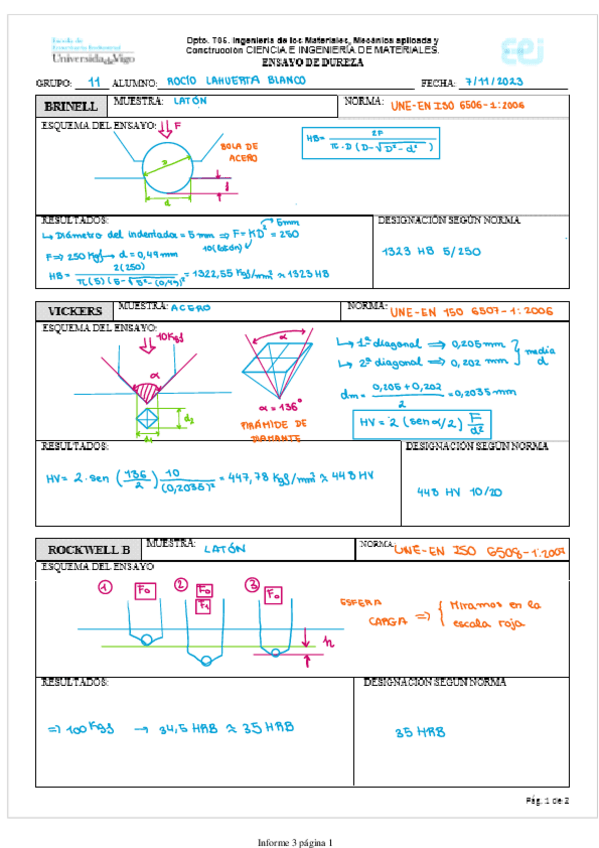 Escuela de
Ingeniería Industrial
Universidade Vigo
Dpto. T05. Ingeniería de los Materiales, Mecánica aplicada y
Construcción CIENCIA E INGENIERÍA DE MATERIALES.
ENSAYO DE DUREZA
eei
GRUPO: 11 ALUMNO: ROCÍO LAHUERTA BLANCO FECHA: 7/11/2023
BRINELL MUESTRA: LATÓN NORMA: UNE-EN ISO 6506-1:2006
ESQUEMA DEL ENSAYO:
F
BOLA DE
ACERO
D
d
HB = 2F / π·D (D-√D²-d²)
RESULTADOS:
↳ Diámetro del indentador = 5mm ⇒ F = KD² = 250
5mm
10 (latón)
F ⇒ 250 Kgf → d = 0,49mm
HB = 2(250) / π(5)(5-√5²-(0,49)²) = 1322,55 Kgf/mm² ≈ 1323 HB
DESIGNACIÓN SEGÚN NORMA
1323 HB 5/250
VICKERS MUESTRA: ACERO NORMA: UNE-EN ISO 6507-1:2006
ESQUEMA DEL ENSAYO:
10Kgf
α
d₂
d₁
α
α = 136°
PIRÁMIDE DE
DIAMANTE
↳ 1ª diagonal ⇒ 0,205 mm
↳ 2ª diagonal ⇒ 0,202 mm
media
d
dm = 0,205 + 0,202 / 2 = 0,2035mm
HV = 2 (sen α/2) F/d²
RESULTADOS:
HV = 2·sen (136/2) 10/(0,2035)² = 447,78 Kgf/mm² ≈ 448 HV
DESIGNACIÓN SEGÚN NORMA
448 HV 10/20
ROCKWELL B MUESTRA: LATÓN NORMA: UNE-EN ISO 6508-1:2007
ESQUEMA DEL ENSAYO
1 F₀
2 F₀
F₁
3 F₀
h
ESFERA
CARGA ⇒ { Miramos en la
escala roja
RESULTADOS:
⇒ 100 Kgf → 34,5 HRB ≈ 35 HRB
DESIGNACIÓN SEGÚN NORMA
35 HRB
Pág. 1 de 2
Informe 3 página 1